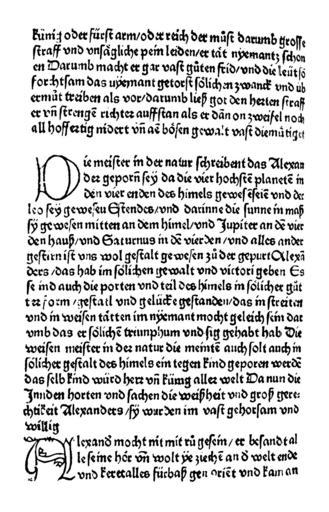 künig oder fürst arm/oder reich der müst darumb grosse
straff vnd vnsägliche pein leiden/er tät nyemantz schon
en Darumb macht er gar vast gůten frid/vnd die leüt so
forchtsam das nyemant getorst sölichen zwanck vnd üb
ermůt treiben als vor/darumb ließ got den herten straff
er vñ strengē richter aufstan als er dān on zweifel noch
all hoffertig nidert vñ aē bösen gewalt vast diemütiget
Die meister in der natur schreibent das Alexan
der geporn sey da die vier höchsten planetē in
den vier enden des himels gewesē seiē vnd der
leo sey gewesen Stendes/vnd darinne die sunne in maß
sy gewesen mitten an dem himel/vnd Jupiter an dē vier
den hauß/vnd Saturnus in dē vierden/vnd alles ander
gestirn ist vns wol gestalt gewesen zů der gepurt Alexā
ders/das hab im sölichen gewalt vnd victori geben Es
se ind auch die porten vnd teil des himels in sölicher güt
ter form/gestalt vnd gelücke gestanden/das in streiten
vnd in weisen tätten im nyemant mocht geleich sein dar
vmb das er sölichē triumphum vnd sig gehabt hab Die
weisen meister in der natur die meintē auch solt auch in
sölicher gestalt des himels ein tegen kind geporen werdē
das selb kind würd herr vñ künig aller welt Da nun die
Innden horten vnd sachen die weißheit vnd groß gere
chtikeit Alexanders/sy wurden im vast gehorsam vnd
willig
Alexand mocht nit mit rů gesein/er besandt al
le seine hör vñ wolt ye ziechē an ď welt ende
vnd keret alles fürbaß gen oriēt vnd kam an